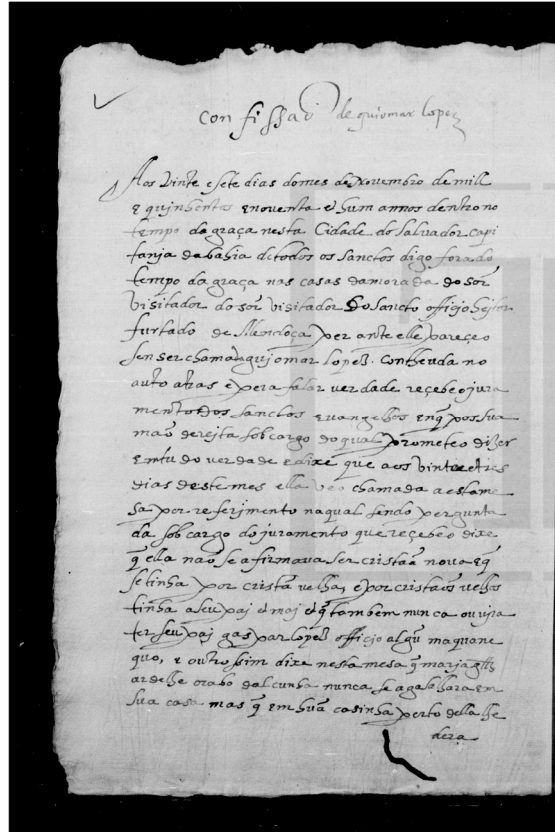 Confissaõ de guiomar lopez
Aos vinte e sete dias do mes de novembro de mill
e quinhentos e noventa e hum annos dentro no
tempo da graça nesta Cidade do salvador capi
tanja da bahia de todos os sanctos digo fora do
tempo da graça nas casas da morada do sõr
visitador do sõr visitador do sancto officio heitor
furtado de Mendoça per ante elle pareçeo
sen ser chamada guiomar lopez. Contheuda no
auto atras e pera falar verdade reçebeo jura
mento dos sanctos evangelhos en q̃ pos sua
maõ dereita sob cargo do qual prometeo dizer
em tudo verdade e dixe que aos vinte e tres
dias deste mes ella veo chamada a esta me
sa por referjmento na qual sendo pergunta
da sob cargo do juramento que reçebeo dixe
q̃ ella naõ se afirmava ser cristaã nova e q̃
se tinha por cristã velha, e por cristaõs velhos
tinha a seu paj e maj e q̃ tambem nunca ouvira
ter seu paj gaspar lopez officio algũ
quo, e outrossim dixe nesta mesa q̃ marja glz
ardelhe o rabo dalcunha nunca se agasalhara em
sua casa mas q̃ em huã casinha perto della lhe
dera